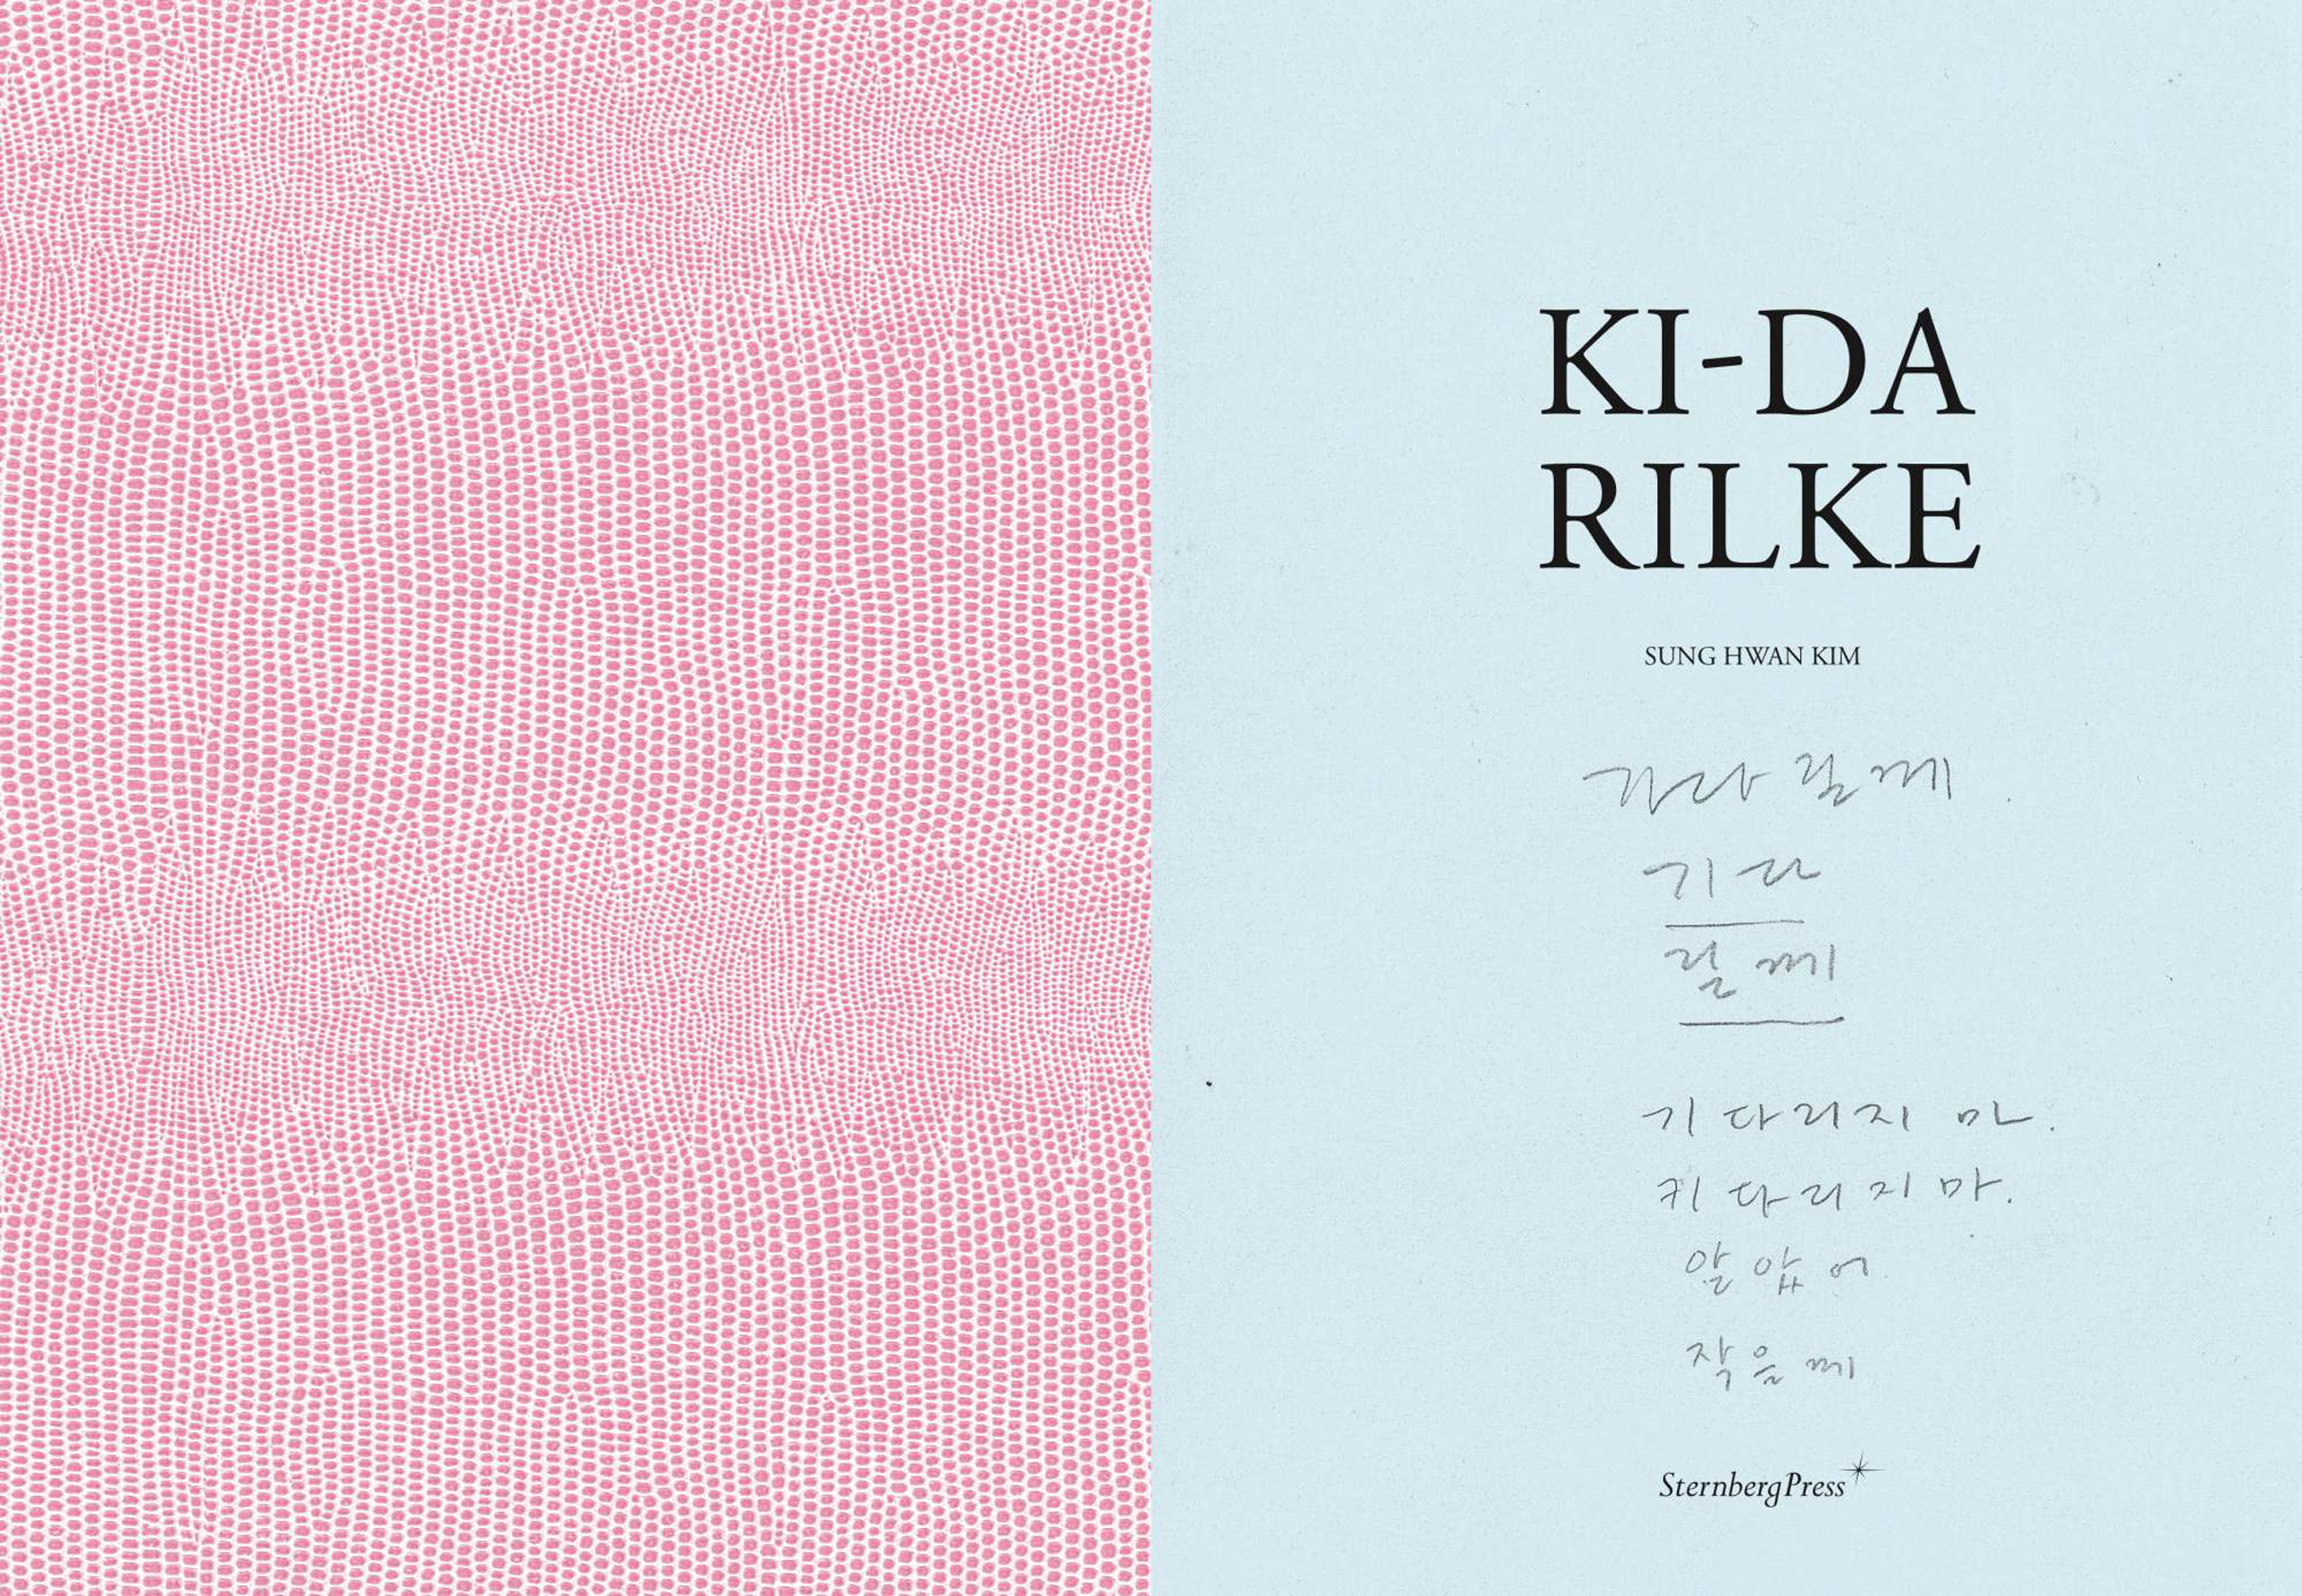 KI-DA
RILKE
SUNG HWAN KIM
기다릴께.
기다
릴께
기다리지 마.
키다리지 마.
알았어
작을께
SternbergPress